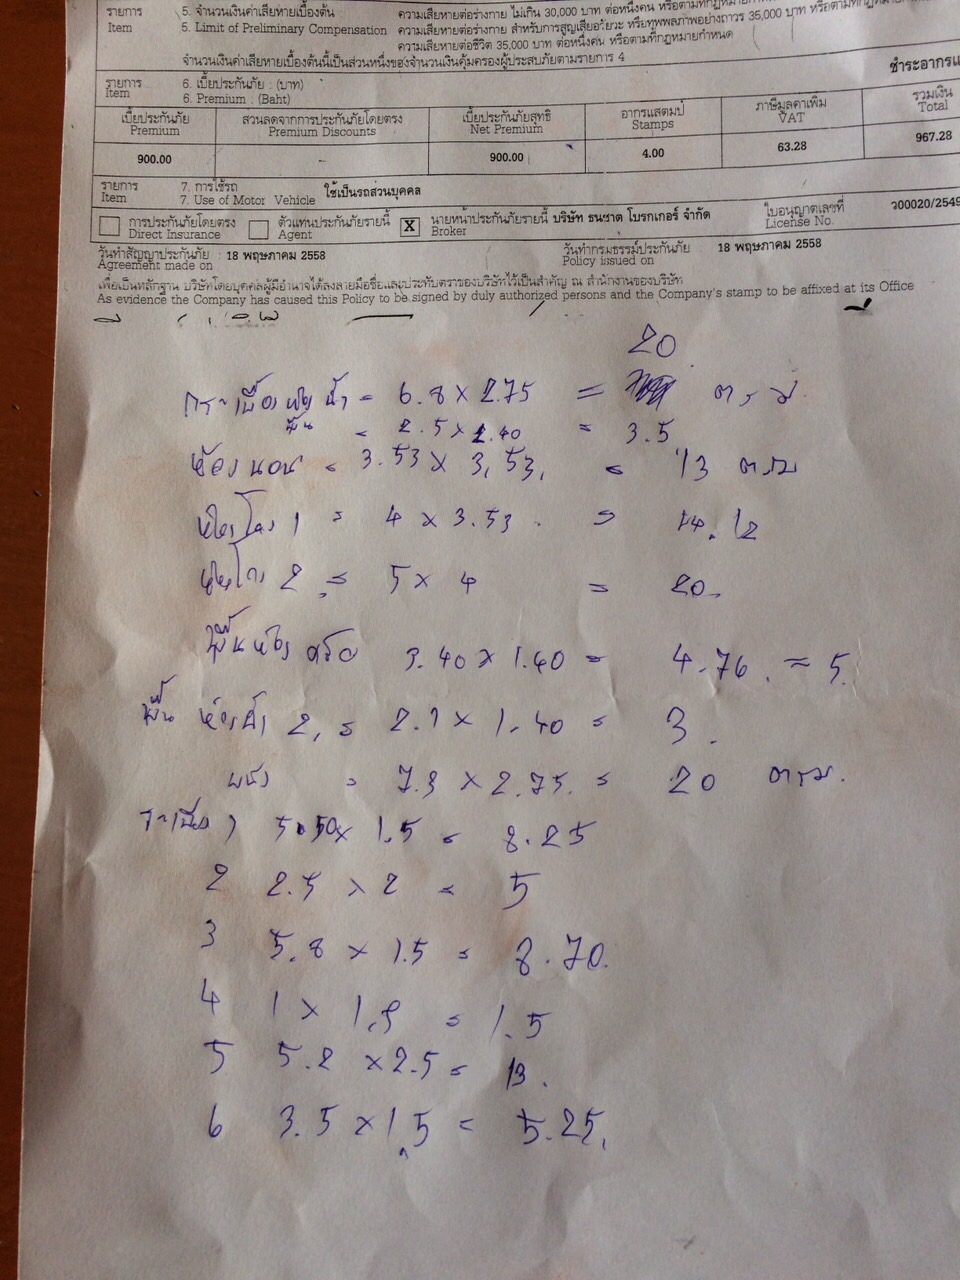 รายการ 5. จำนวนเงินค่าเสียหายเบื้องต้น ความเสียหายต่อร่างกาย ไม่เกิน 30,000 บาท ต่อหนึ่งคน หรือตามที่กฎหมายกำหนด
Item 5. Limit of Preliminary Compensation ความเสียหายต่อร่างกาย สำหรับการสูญเสียอวัยวะ หรือทุพพลภาพอย่างถาวร 35,000 บาท
ความเสียหายต่อชีวิต 35,000 บาท ต่อหนึ่งคน หรือตามที่กฎหมายกำหนด
จำนวนเงินค่าเสียหายเบื้องต้นนี้เป็นส่วนหนึ่งของจำนวนเงินคุ้มครองผู้ประสบภัยตามรายการ 4
รายการ 6. เบี้ยประกันภัย : (บาท) ชำระอากร
Item 6. Premium : (Baht)
เบี้ยประกันภัย ส่วนลดจากการประกันภัยโดยตรง เบี้ยประกันภัยสุทธิ อากรแสตมป์ ภาษีมูลค่าเพิ่ม รวมเงิน
Premium Premium Discounts Net Premium Stamps VAT Total
900.00 - 900.00 4.00 63.28 967.28
รายการ 7. การใช้รถ ใช้เป็นรถส่วนบุคคล
Item 7. Use of Motor Vehicle
การประกันภัยโดยตรง ตัวแทนประกันภัยรายนี้ X นายหน้าประกันภัยรายนี้ บริษัท ธนชาต โบรกเกอร์ จำกัด ใบอนุญาตเลขที่ ว00020/2549
Direct Insurance Agent Broker License No.
วันทำสัญญาประกันภัย : 18 พฤษภาคม 2558 วันทำกรมธรรม์ประกันภัย : 18 พฤษภาคม 2558
Agreement made on Policy issued on
เพื่อเป็นหลักฐาน บริษัทโดยบุคคลผู้มีอำนาจได้ลงลายมือชื่อและประทับตราของบริษัทไว้เป็นสำคัญ ณ สำนักงานของบริษัท
As evidence the Company has caused this Policy to be signed by duly authorized persons and the Company's stamp to be affixed at its Office
20
กระเบื้องห้องน้ำ = 6.8 x 2.75 = ตรม
พื้น = 2.5 x 2.40 = 3.5
ห้องนอน = 3.53 x 3.53 = 13 ตรม
ห้องโถง 1 = 4 x 3.53 = 14.12
ห้องโถง 2 = 5 x 4 = 20
พื้นห้องครัว 3.40 x 1.40 = 4.76 = 5
พื้น ห้องน้ำ 2 = 2.1 x 1.40 = 3
ผนัง = 7.3 x 2.75 = 20 ตรม.
ระเบียง 1 5.50 x 1.5 = 8.25
2 2.5 x 2 = 5
3 5.8 x 1.5 = 8.70
4 1 x 1.5 = 1.5
5 5.2 x 2.5 = 13
6 3.5 x 1.5 = 5.25